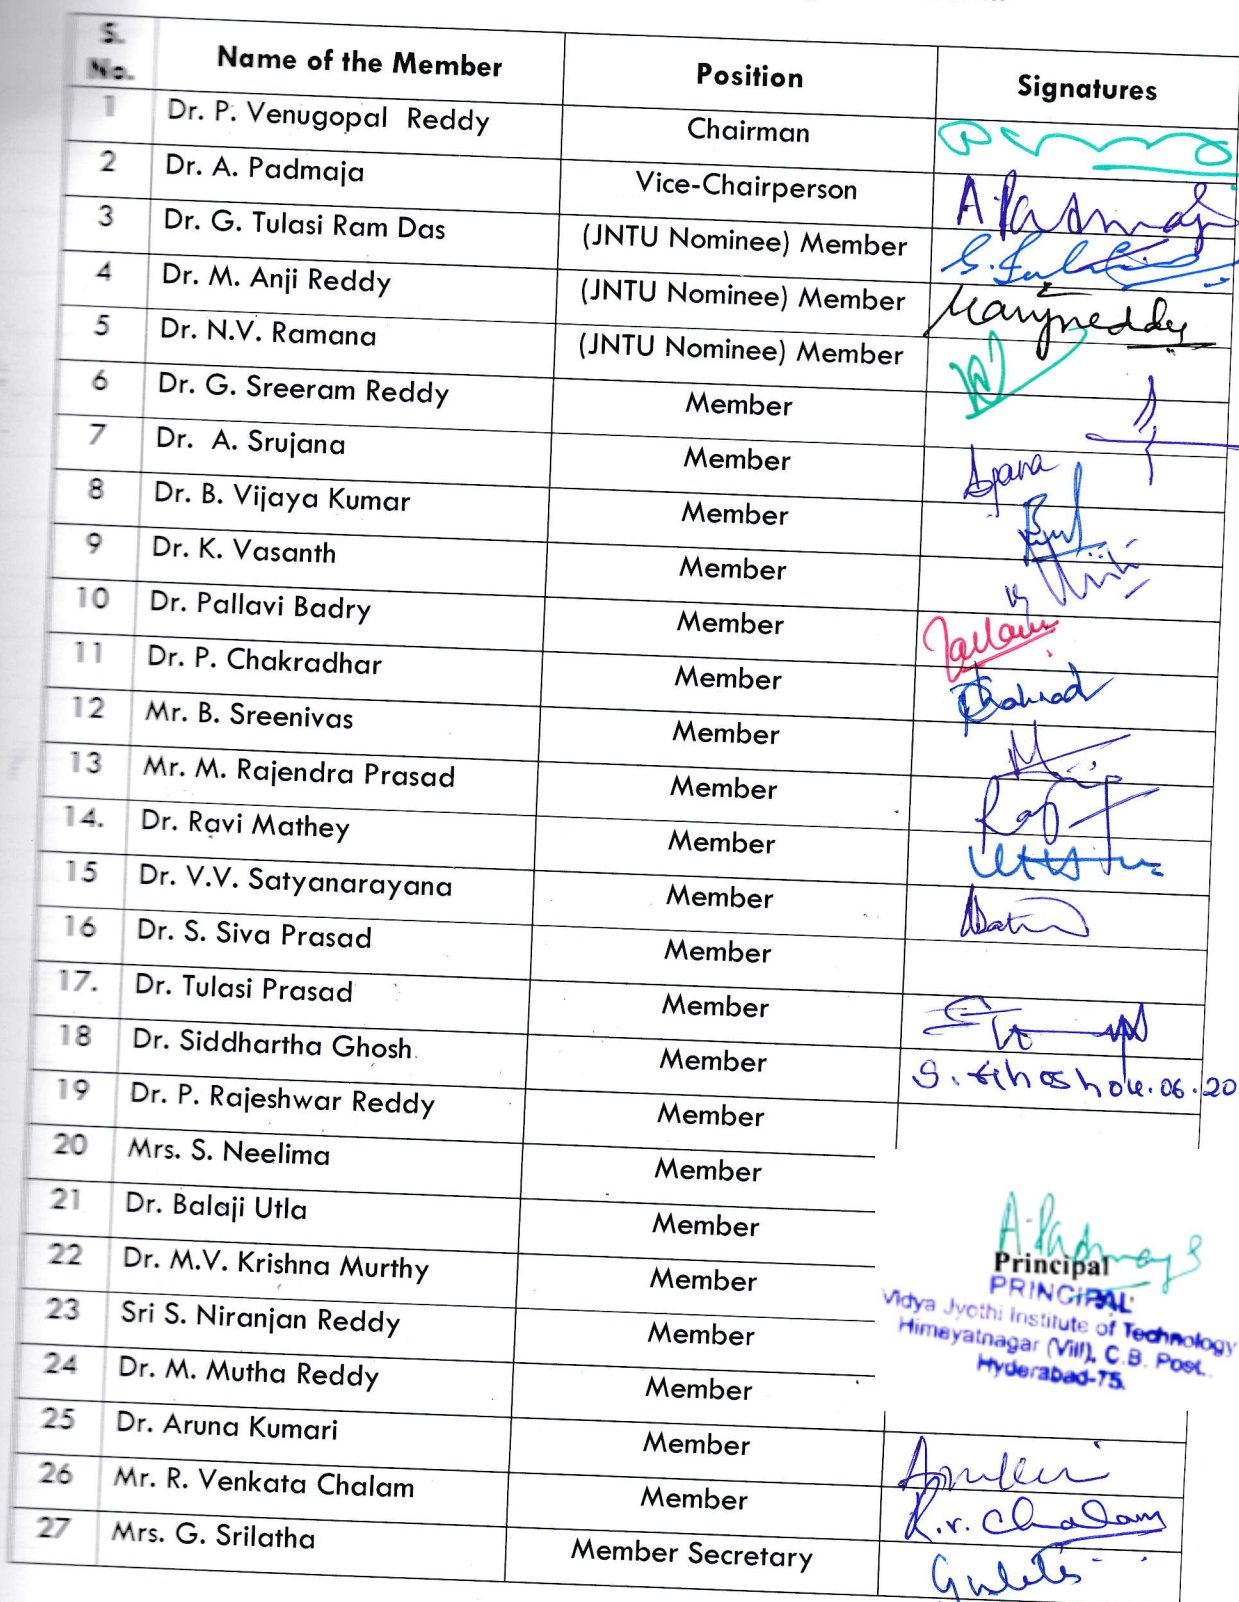 S. No. Name of the Member Position Signatures
1 Dr. P. Venugopal Reddy Chairman
2 Dr. A. Padmaja Vice-Chairperson A. Padmaja
3 Dr. G. Tulasi Ram Das (JNTU Nominee) Member
4 Dr. M. Anji Reddy (JNTU Nominee) Member Manjireddy
5 Dr. N.V. Ramana (JNTU Nominee) Member
6 Dr. G. Sreeram Reddy Member
7 Dr. A. Srujana Member
8 Dr. B. Vijaya Kumar Member
9 Dr. K. Vasanth Member
10 Dr. Pallavi Badry Member Pallavi
11 Dr. P. Chakradhar Member
12 Mr. B. Sreenivas Member
13 Mr. M. Rajendra Prasad Member
14. Dr. Ravi Mathey Member
15 Dr. V.V. Satyanarayana Member
16 Dr. S. Siva Prasad Member
17. Dr. Tulasi Prasad Member
18 Dr. Siddhartha Ghosh Member S. Ghosh 04.06.20
19 Dr. P. Rajeshwar Reddy Member
20 Mrs. S. Neelima Member
21 Dr. Balaji Utla Member
22 Dr. M.V. Krishna Murthy Member
23 Sri S. Niranjan Reddy Member
24 Dr. M. Mutha Reddy Member
25 Dr. Aruna Kumari Member
26 Mr. R. Venkata Chalam Member R.V. Chalam
27 Mrs. G. Srilatha Member Secretary
A. Padmaja
Principal
PRINCIPAL
Vidya Jyothi Institute of Technology
Himayatnagar (Vill), C.B. Post.
Hyderabad-75.